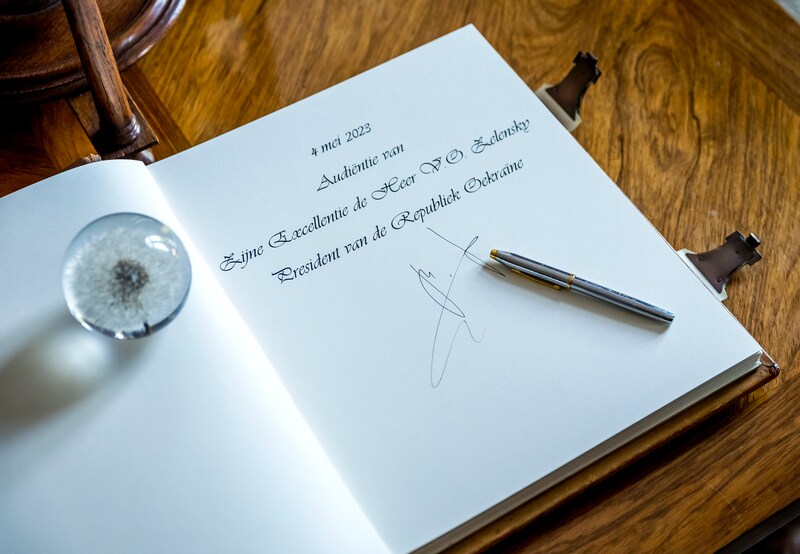 4 mei 2023
Audiëntie van
Zijne Excellentie de Heer V.O. Zelensky
President van de Republiek Oekraïne